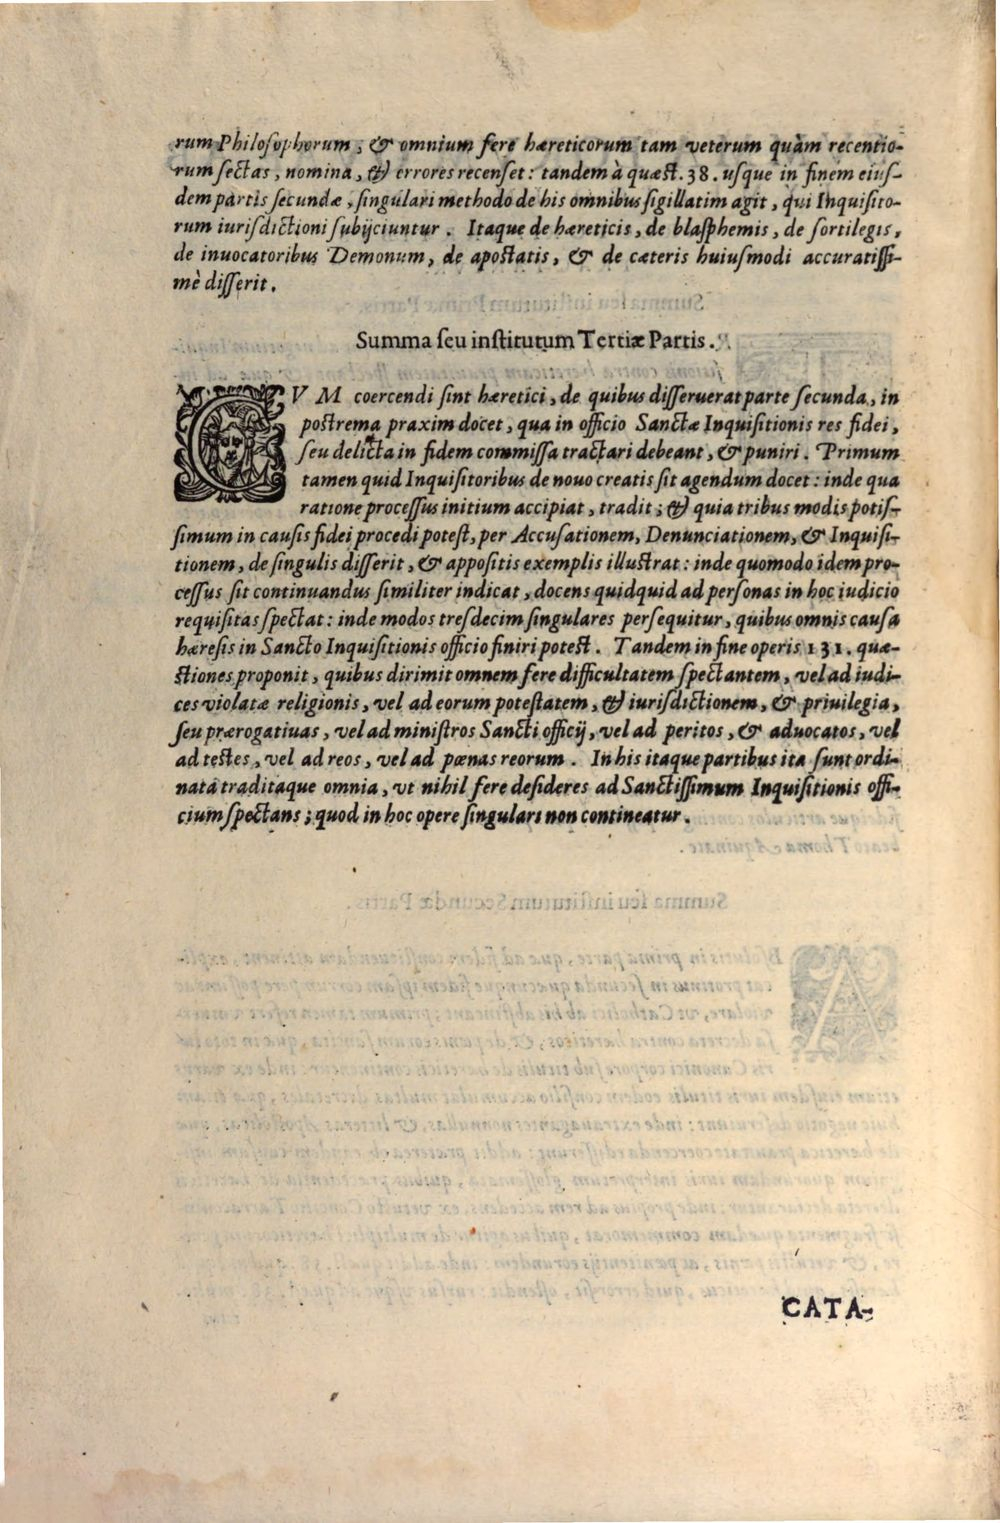 rum Philosophorum, & omnium fere hæreticorum tam veterum quàm recentio-
rum sectas, nomina, & errores recenset: tandem à quæst. 38. usque in finem eius-
dem partis secundæ, singulari methodo de his omnibus sigillatim agit, qui Inquisito-
rum iurisdictioni subijciuntur. Itaque de hæreticis, de blasphemis, de sortilegis,
de inuocatoribus Demonum, de apostatis, & de cæteris huiusmodi accuratissi-
mè disserit.
Summa seu institutum Tertiæ Partis.
CVM coercendi sint hæretici, de quibus disseruerat parte secunda, in
postrema praxim docet, qua in officio Sanctæ Inquisitionis res fidei,
seu delicta in fidem commissa tractari debeant, & puniri. Primum
tamen quid Inquisitoribus de nouo creatis sit agendum docet: inde qua
ratione processus initium accipiat, tradit; & quia tribus modis potis-
simum in causis fidei procedi potest, per Accusationem, Denunciationem, & Inquisi-
tionem, de singulis disserit, & appositis exemplis illustrat: inde quomodo idem pro-
cessus sit continuandus similiter indicat, docens quidquid ad personas in hoc iudicio
requisitas spectat: inde modos tresdecim singulares persequitur, quibus omnis causa
hæresis in Sancto Inquisitionis officio finiri potest. Tandem in fine operis 131. quæ-
stiones proponit, quibus dirimit omnem fere difficultatem spectantem, vel ad iudi-
ces violatæ religionis, vel ad eorum potestatem, & iurisdictionem, & priuilegia,
seu prærogatiuas, vel ad ministros Sancti officij, vel ad peritos, & aduocatos, vel
ad testes, vel ad reos, vel ad pœnas reorum. In his itaque partibus ita sunt ordi-
nata traditaque omnia, vt nihil fere desideres ad Sanctissimum Inquisitionis offi-
cium spectans; quod in hoc opere singulari non contineatur.
CATA-